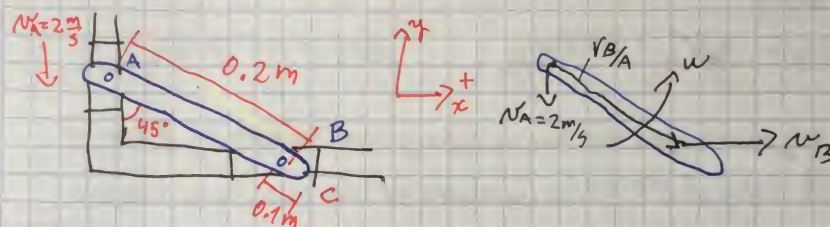 v_A = 2 m/s
A
0.2 m
45°
B
C
0.1 m
y
+
x
r_B/A
ω
v_A = 2 m/s
v_B